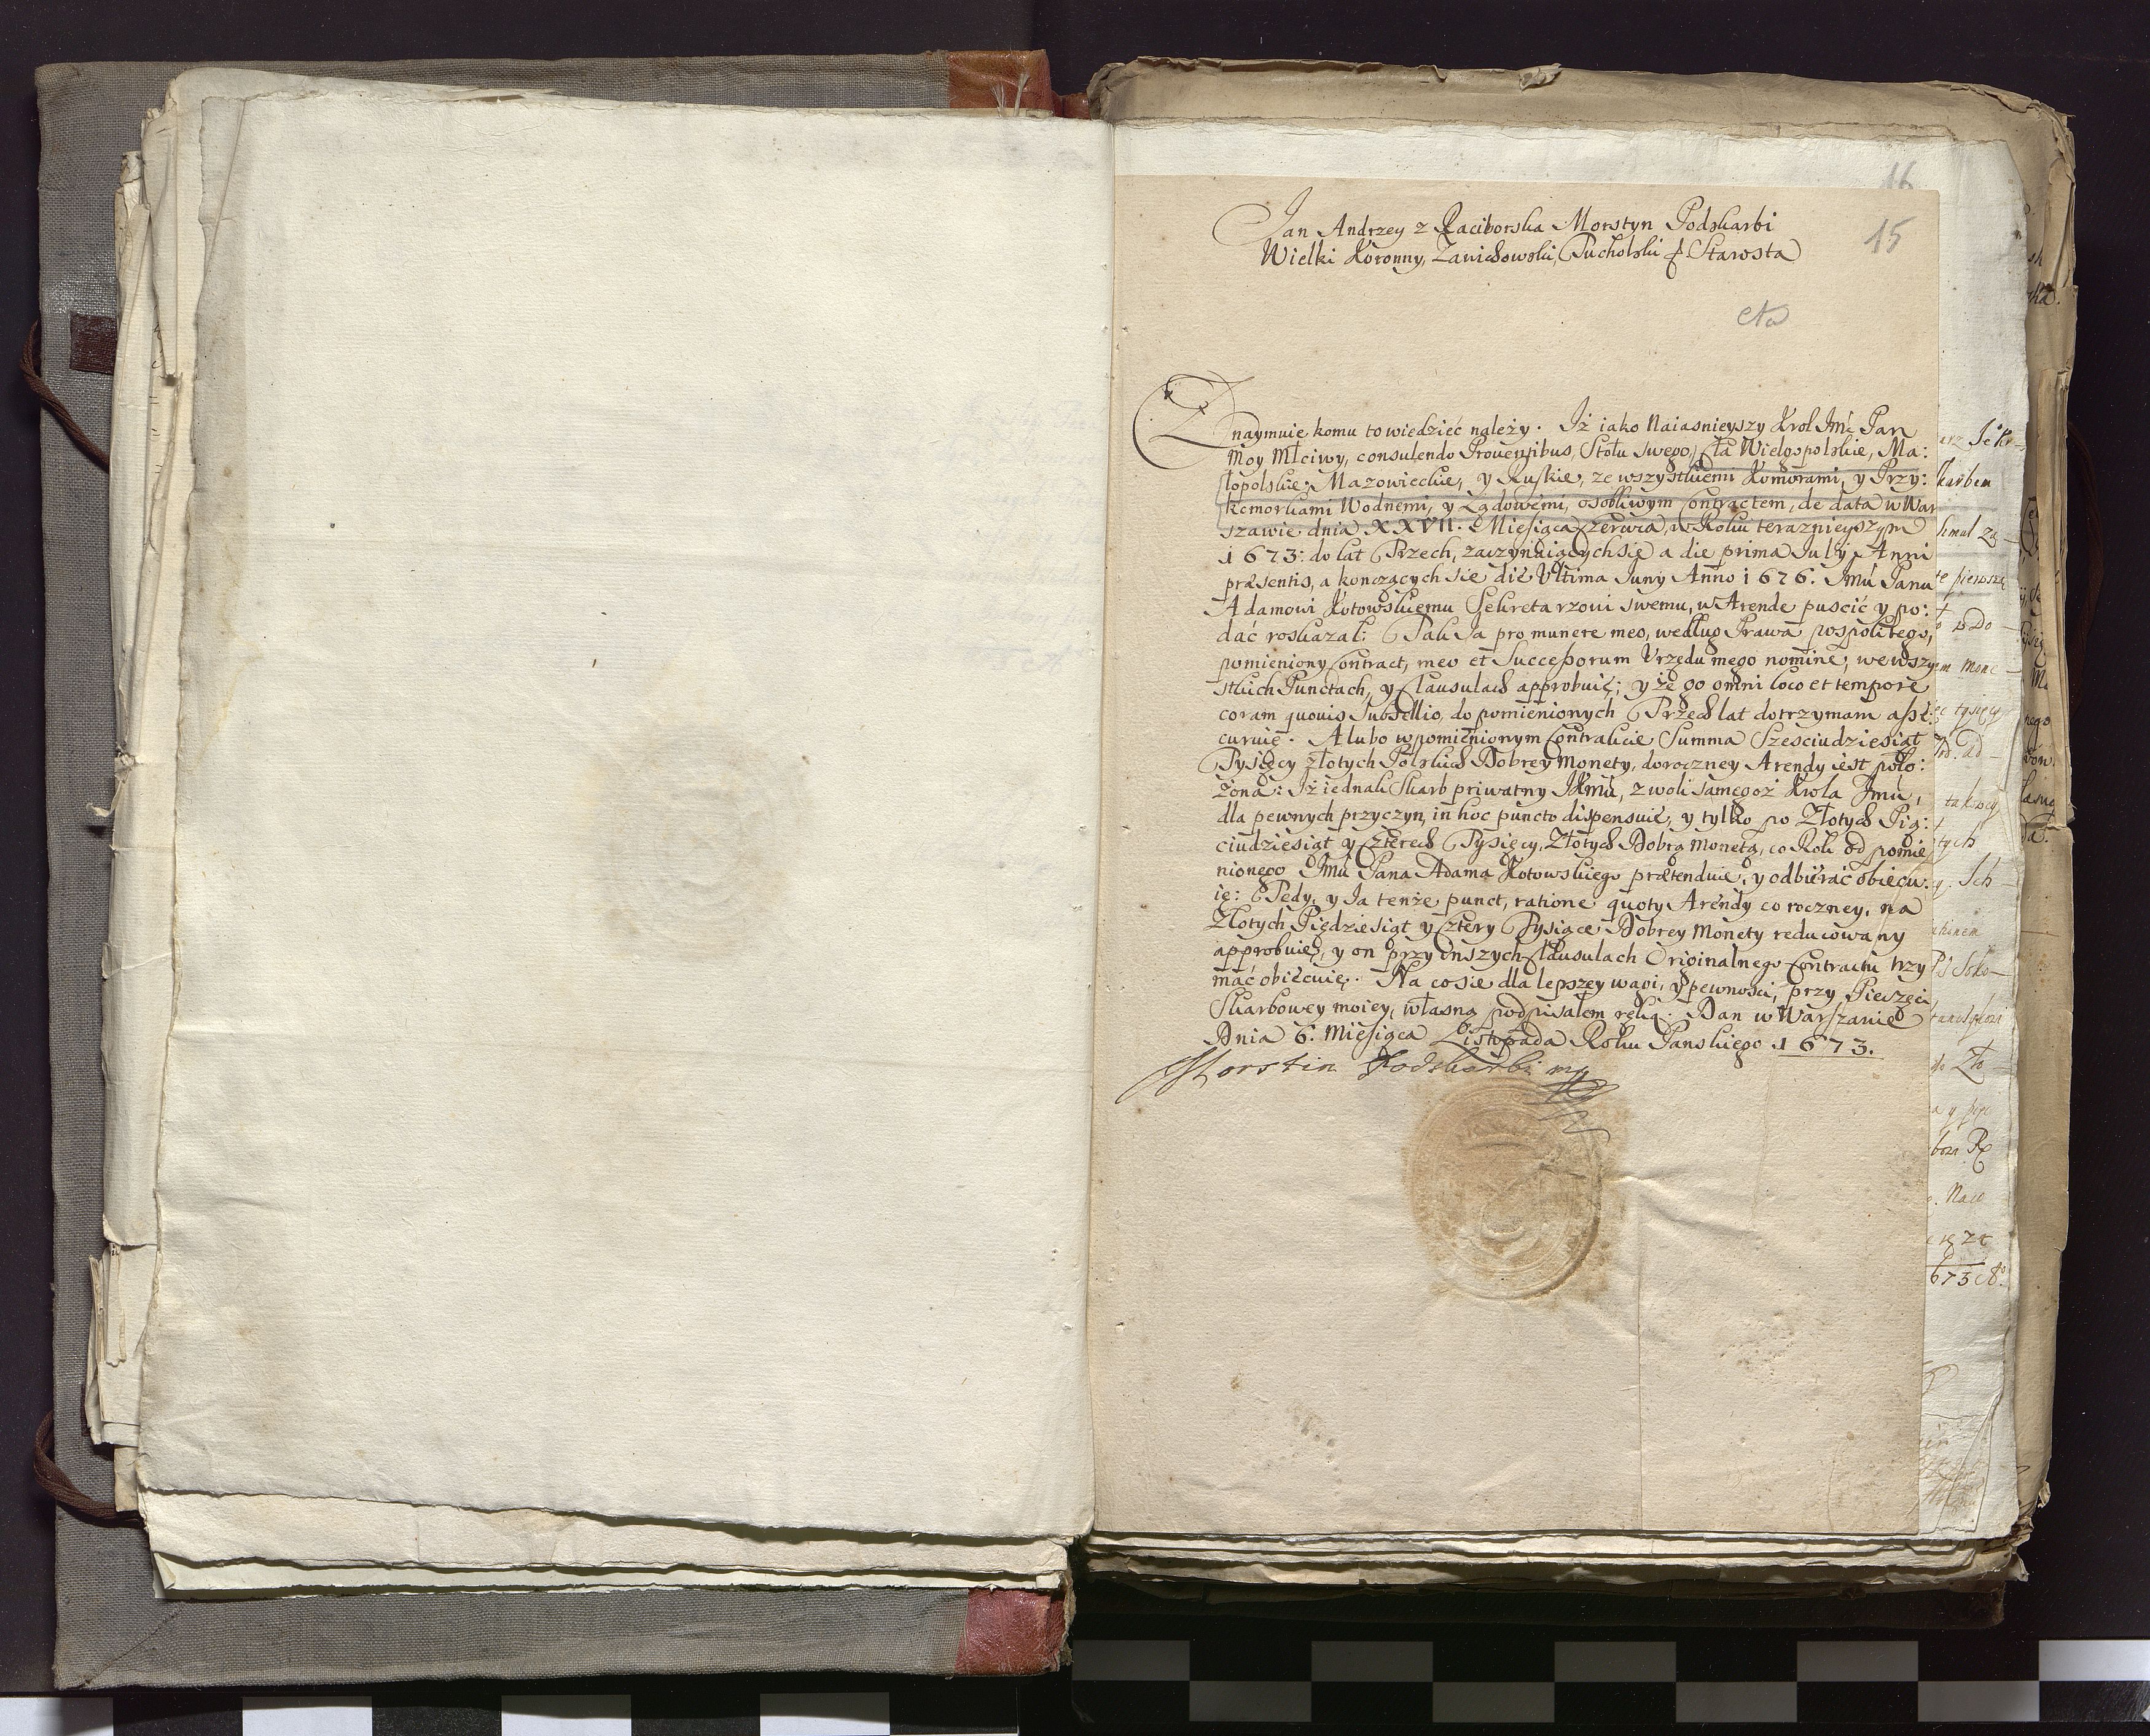 16
15
Jan Andrzey z Raciborska Morstyn Podskarbi
Wielki Koronny, Zawichowski, Tucholski & Starosta
cła
Znaymuię komu to wiedzieć należy. Iż iako Naiasnieyszy Krol Jmć Pan
Moy Młciwy, consulendo Proventibus, Stołu swego, Cła Wielgopolskie, Ma:
łopolskie, Mazowieckie, y Ruskie, ze wszystkiemi Komorami, y Przy:
komorkami Wodnemi, y Lądowemi, osobliwym Contractem, de data w War
szawie dnia XXVII. Miesiąca Czerwca, w Roku teraznieyszym
1673: do lat Trzech, zaczynaiących się a die prima July Anni
præsentis, a konczących się die Ultima Juny Anno 1676. Jmú Panu
Adamowi Kotowskiemu Sekretarzowi swemu, w Arendę puscić y po:
dać roskazał: Tak Ja pro munere meo, według Prawa pospolitego,
pomieniony Contract, meo et Successorum Vrzędu mego nomine, we wszy
stkich Punctach, y Clausulach approbuię; y że go omni loco et tempore
coram quouis Subsellio, do pomienionych Trzech lat dotrzymam asse:
curuię. A lubo w pomienionym Contrakcie Summa Szesciudziesiąt
Tysięcy złotych Polskich Dobrey Monety, doroczney Arendy iest poło:
żona: Iż iednak Skarb priwatny JKmú, z woli samegoż Krola Jmú,
dla pewnych przyczyn, in hoc puncto dispensuie, y tylko po Złotych Pię:
ciudziesiąt y Czterech Tysięcy, Złotych Dobrą Monetą, co Rok od pomie
nionego Jmú Pana Adama Kotowskiego prætenduie, y odbierać obiecu:
ie: Tedy, y Ja tenże punct, ratione quoty Arendy co roczney, na
Złotych Pięcdziesiąt y Cztery Tysiące Dobrey Monety reducowany
approbuię, y on przy inszych Clausulach Originalnego Contractu trzy
mać obiecuię. Na co się dla lepszey wagi, y pewności, przy Pieczęci
Skarbowey moiey, własną podpisałem ręką. Dan w Warszawie
Dnia 6. Miesiąca Listopada Roku Panskiego 1673.
Morstin Podskarbi mp